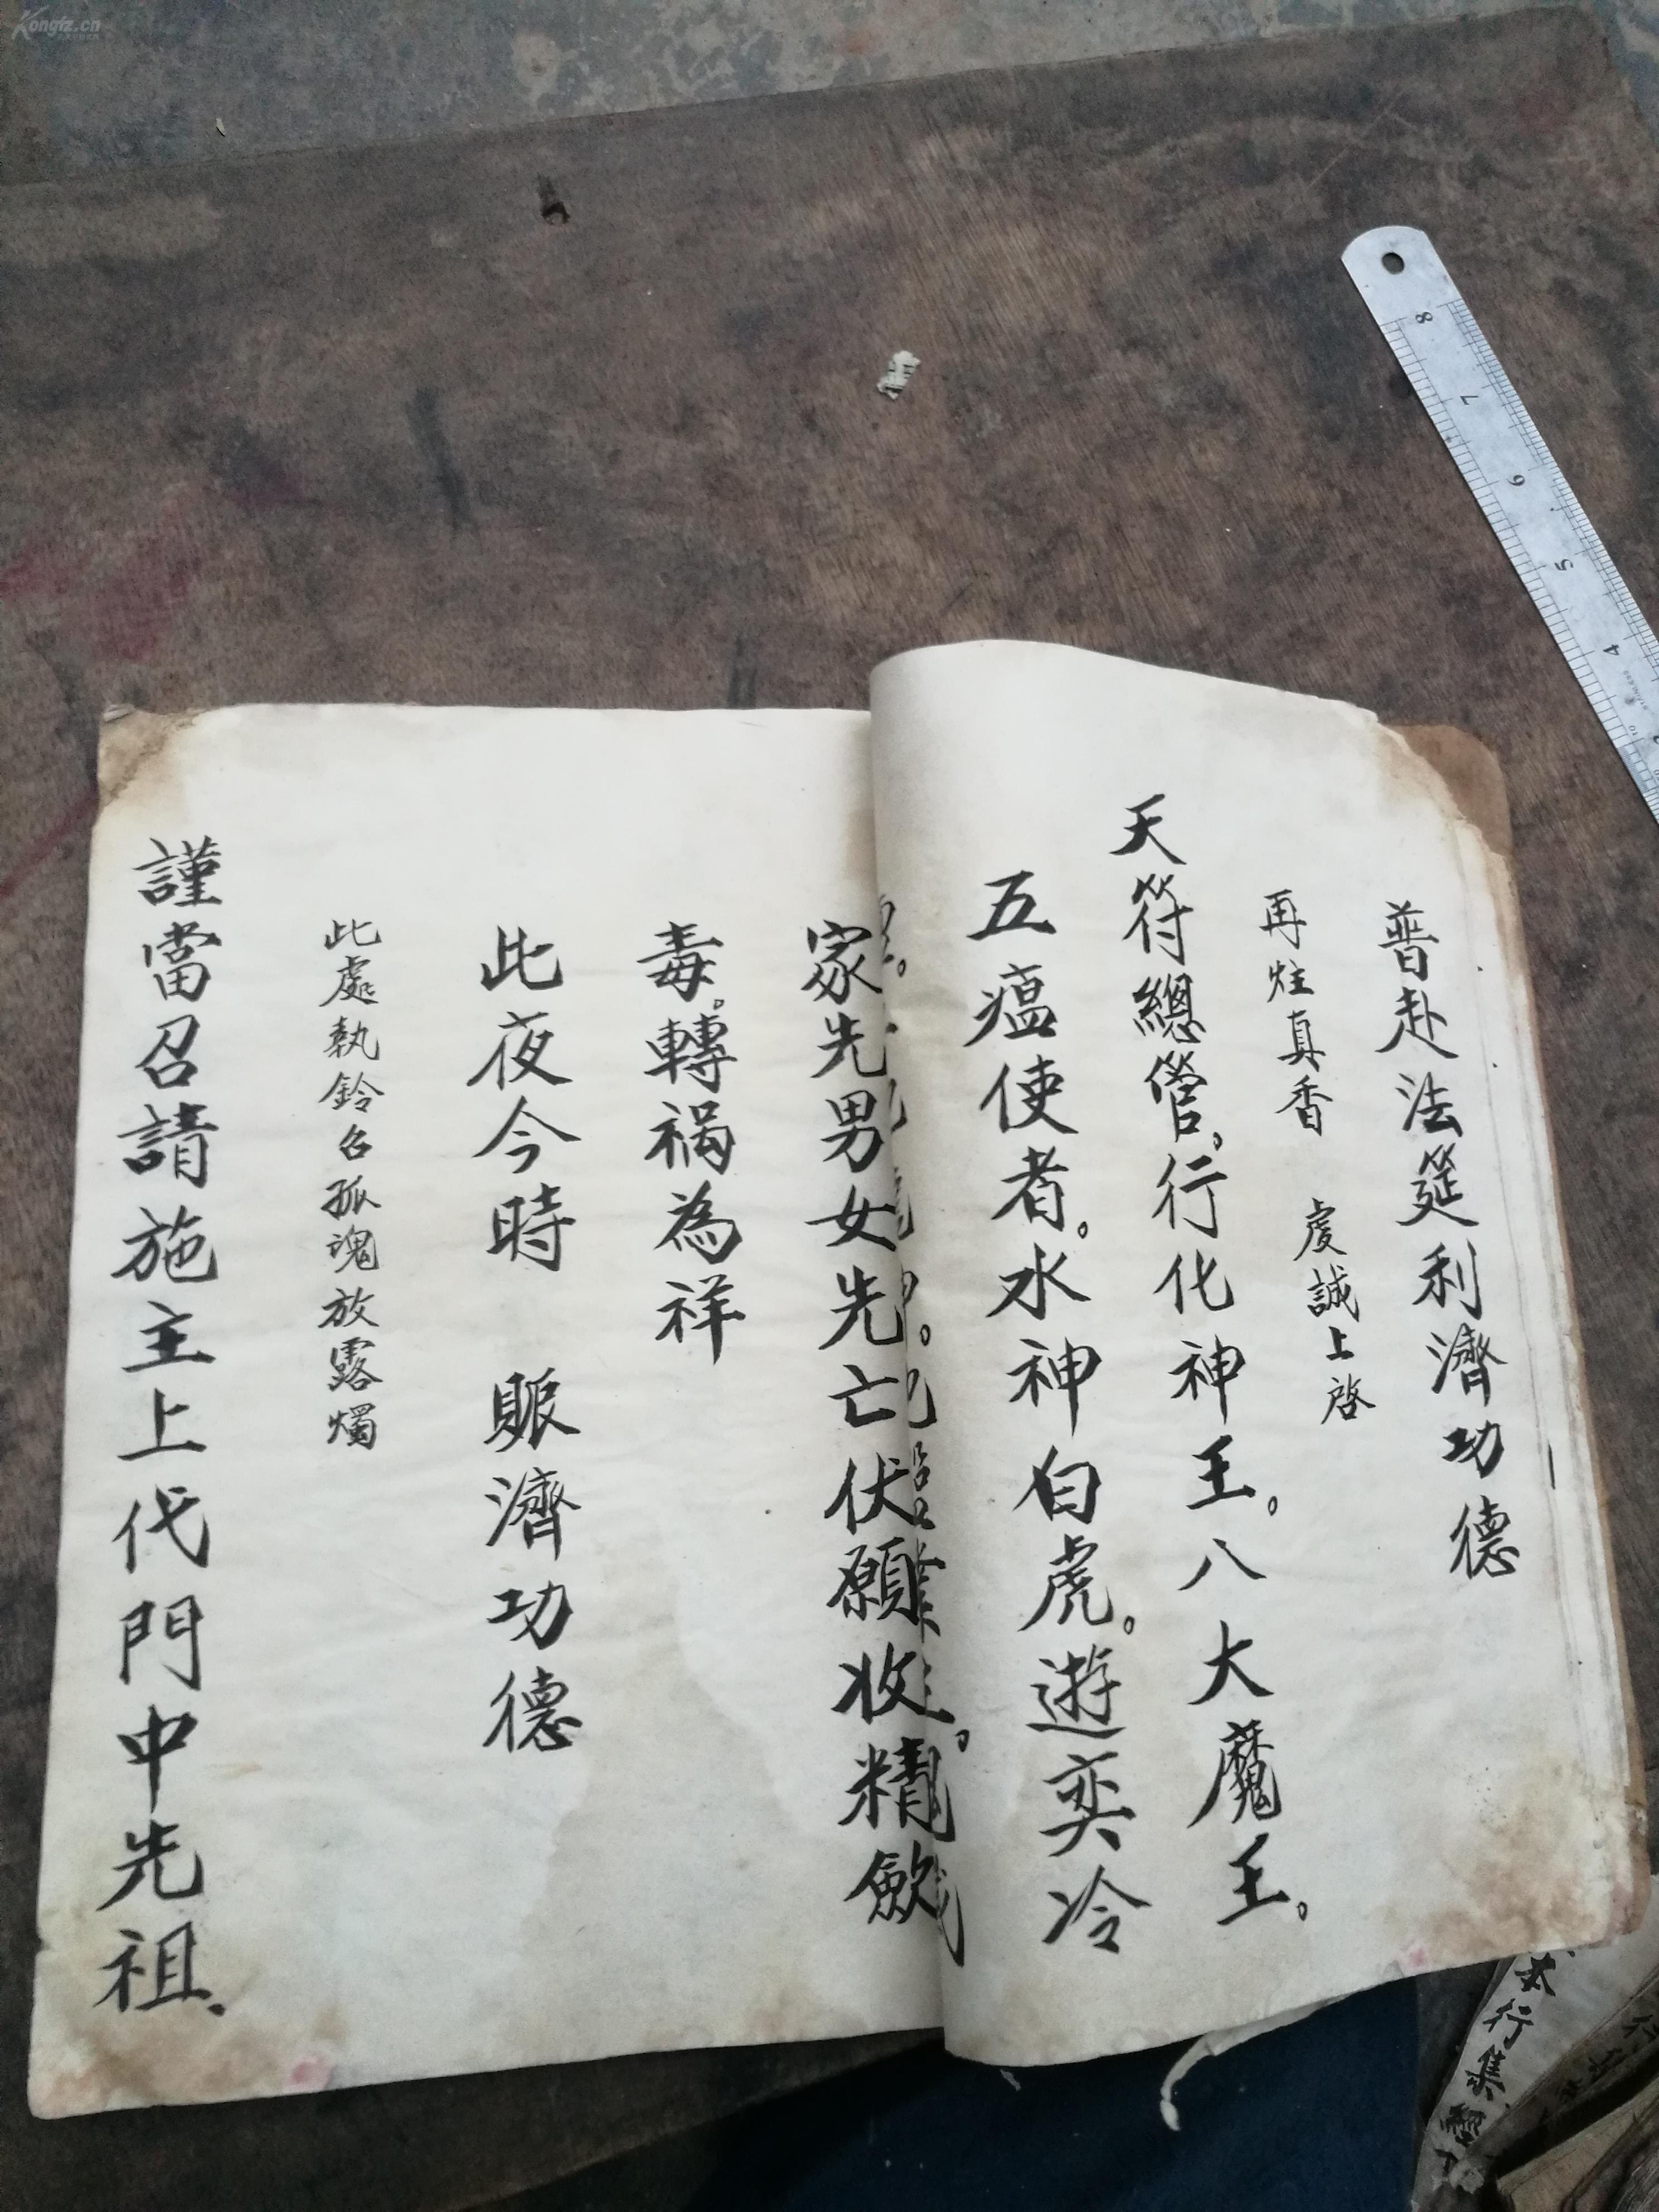 普赴法筵利濟功德
再炷真香 虔誠上啓
天符總管。行化神王。八大魔王。
五瘟使者。水神白虎。遊奕冷
家先男女先亡伏願收精歛
毒。轉禍為祥
此夜今時 賑濟功德
此處執鈴召孤魂放露燭
謹當召請施主上代門中先祖。
行集
8
7
6
5
4
Kongfz.cn